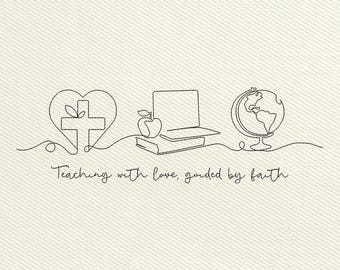 Teaching with love, guided by faith